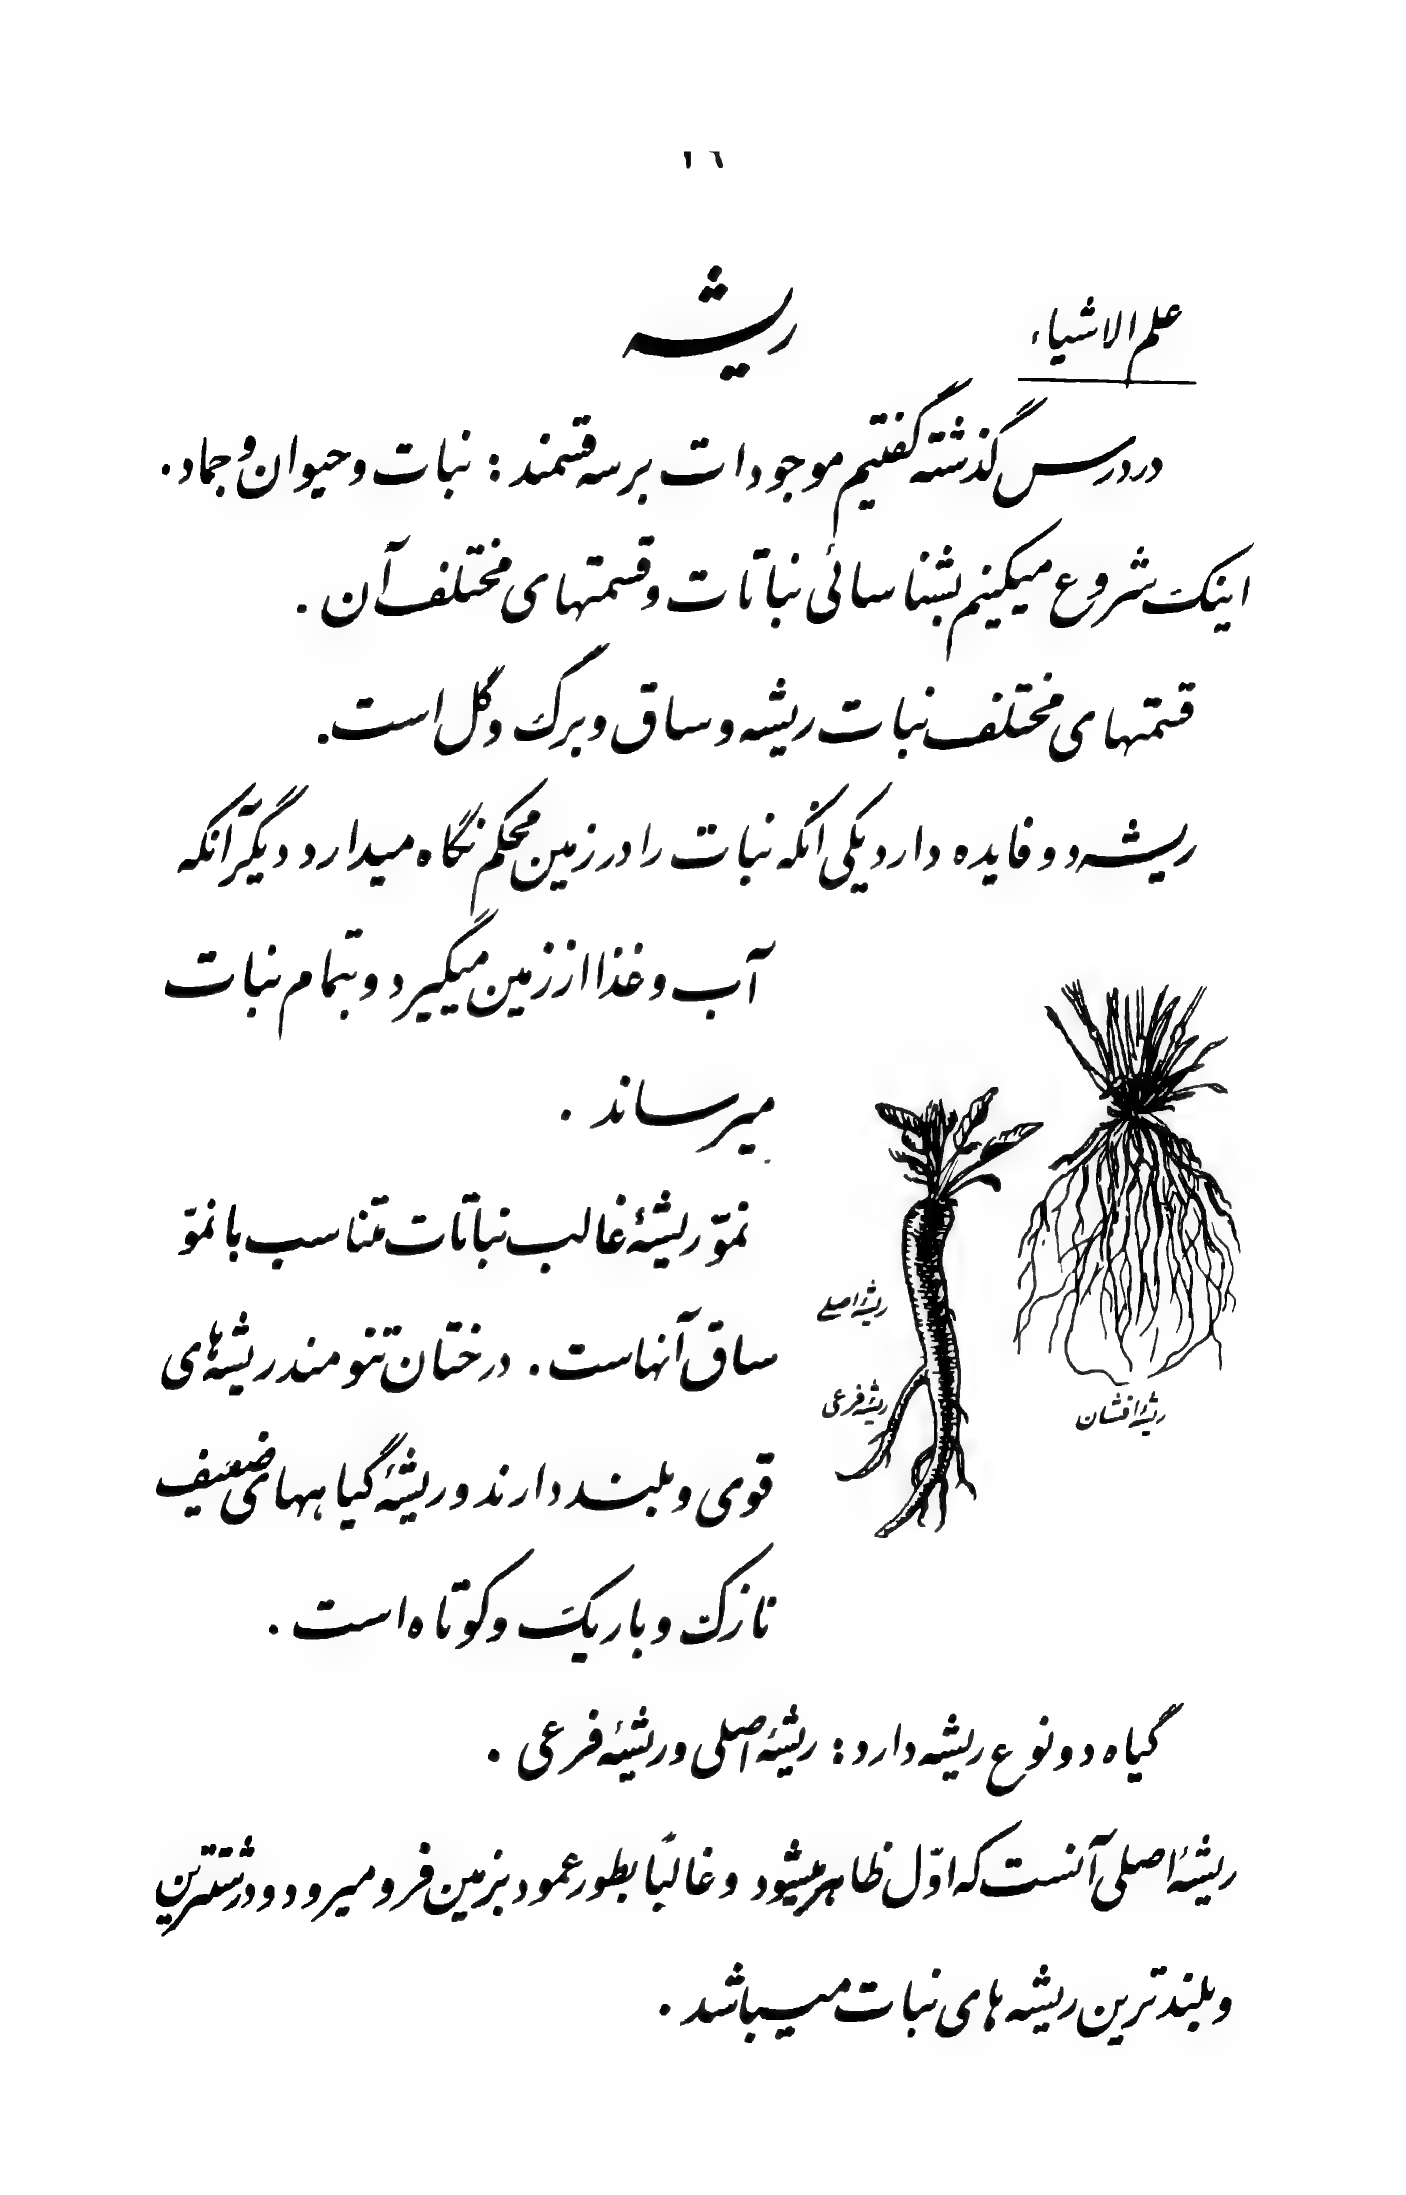 علم الاشیاء
ریشه
در درس گذشته گفتیم موجودات بر سه قسمند : نبات و حیوان و جماد .
اینک شروع میکنیم بشناسائی نباتات و قسمتهای مختلف آن .
قسمتهای مختلف نبات ریشه و ساق و برگ و گل است .
ریشه دو فایده دارد یکی آنکه نبات را در زمین محکم نگاه میدارد دیگر آنکه
آب و غذا از زمین میگیرد و بتمام نبات
میرساند .
نموّ ریشهٔ غالب نباتات متناسب با نموّ
ساق آنهاست . درختان تنومند ریشه‌های
قوی و بلند دارند و ریشهٔ گیاههای ضعیف
نازک و باریک و کوتاه است .
ریشهٔ افشان
ریشهٔ اصلی
ریشهٔ فرعی
گیاه دو نوع ریشه دارد : ریشهٔ اصلی و ریشهٔ فرعی .
ریشهٔ اصلی آنست که اوّل ظاهر میشود و غالباً بطور عمود بزمین فرو میرود و درشتترین
و بلندترین ریشه های نبات میباشد .